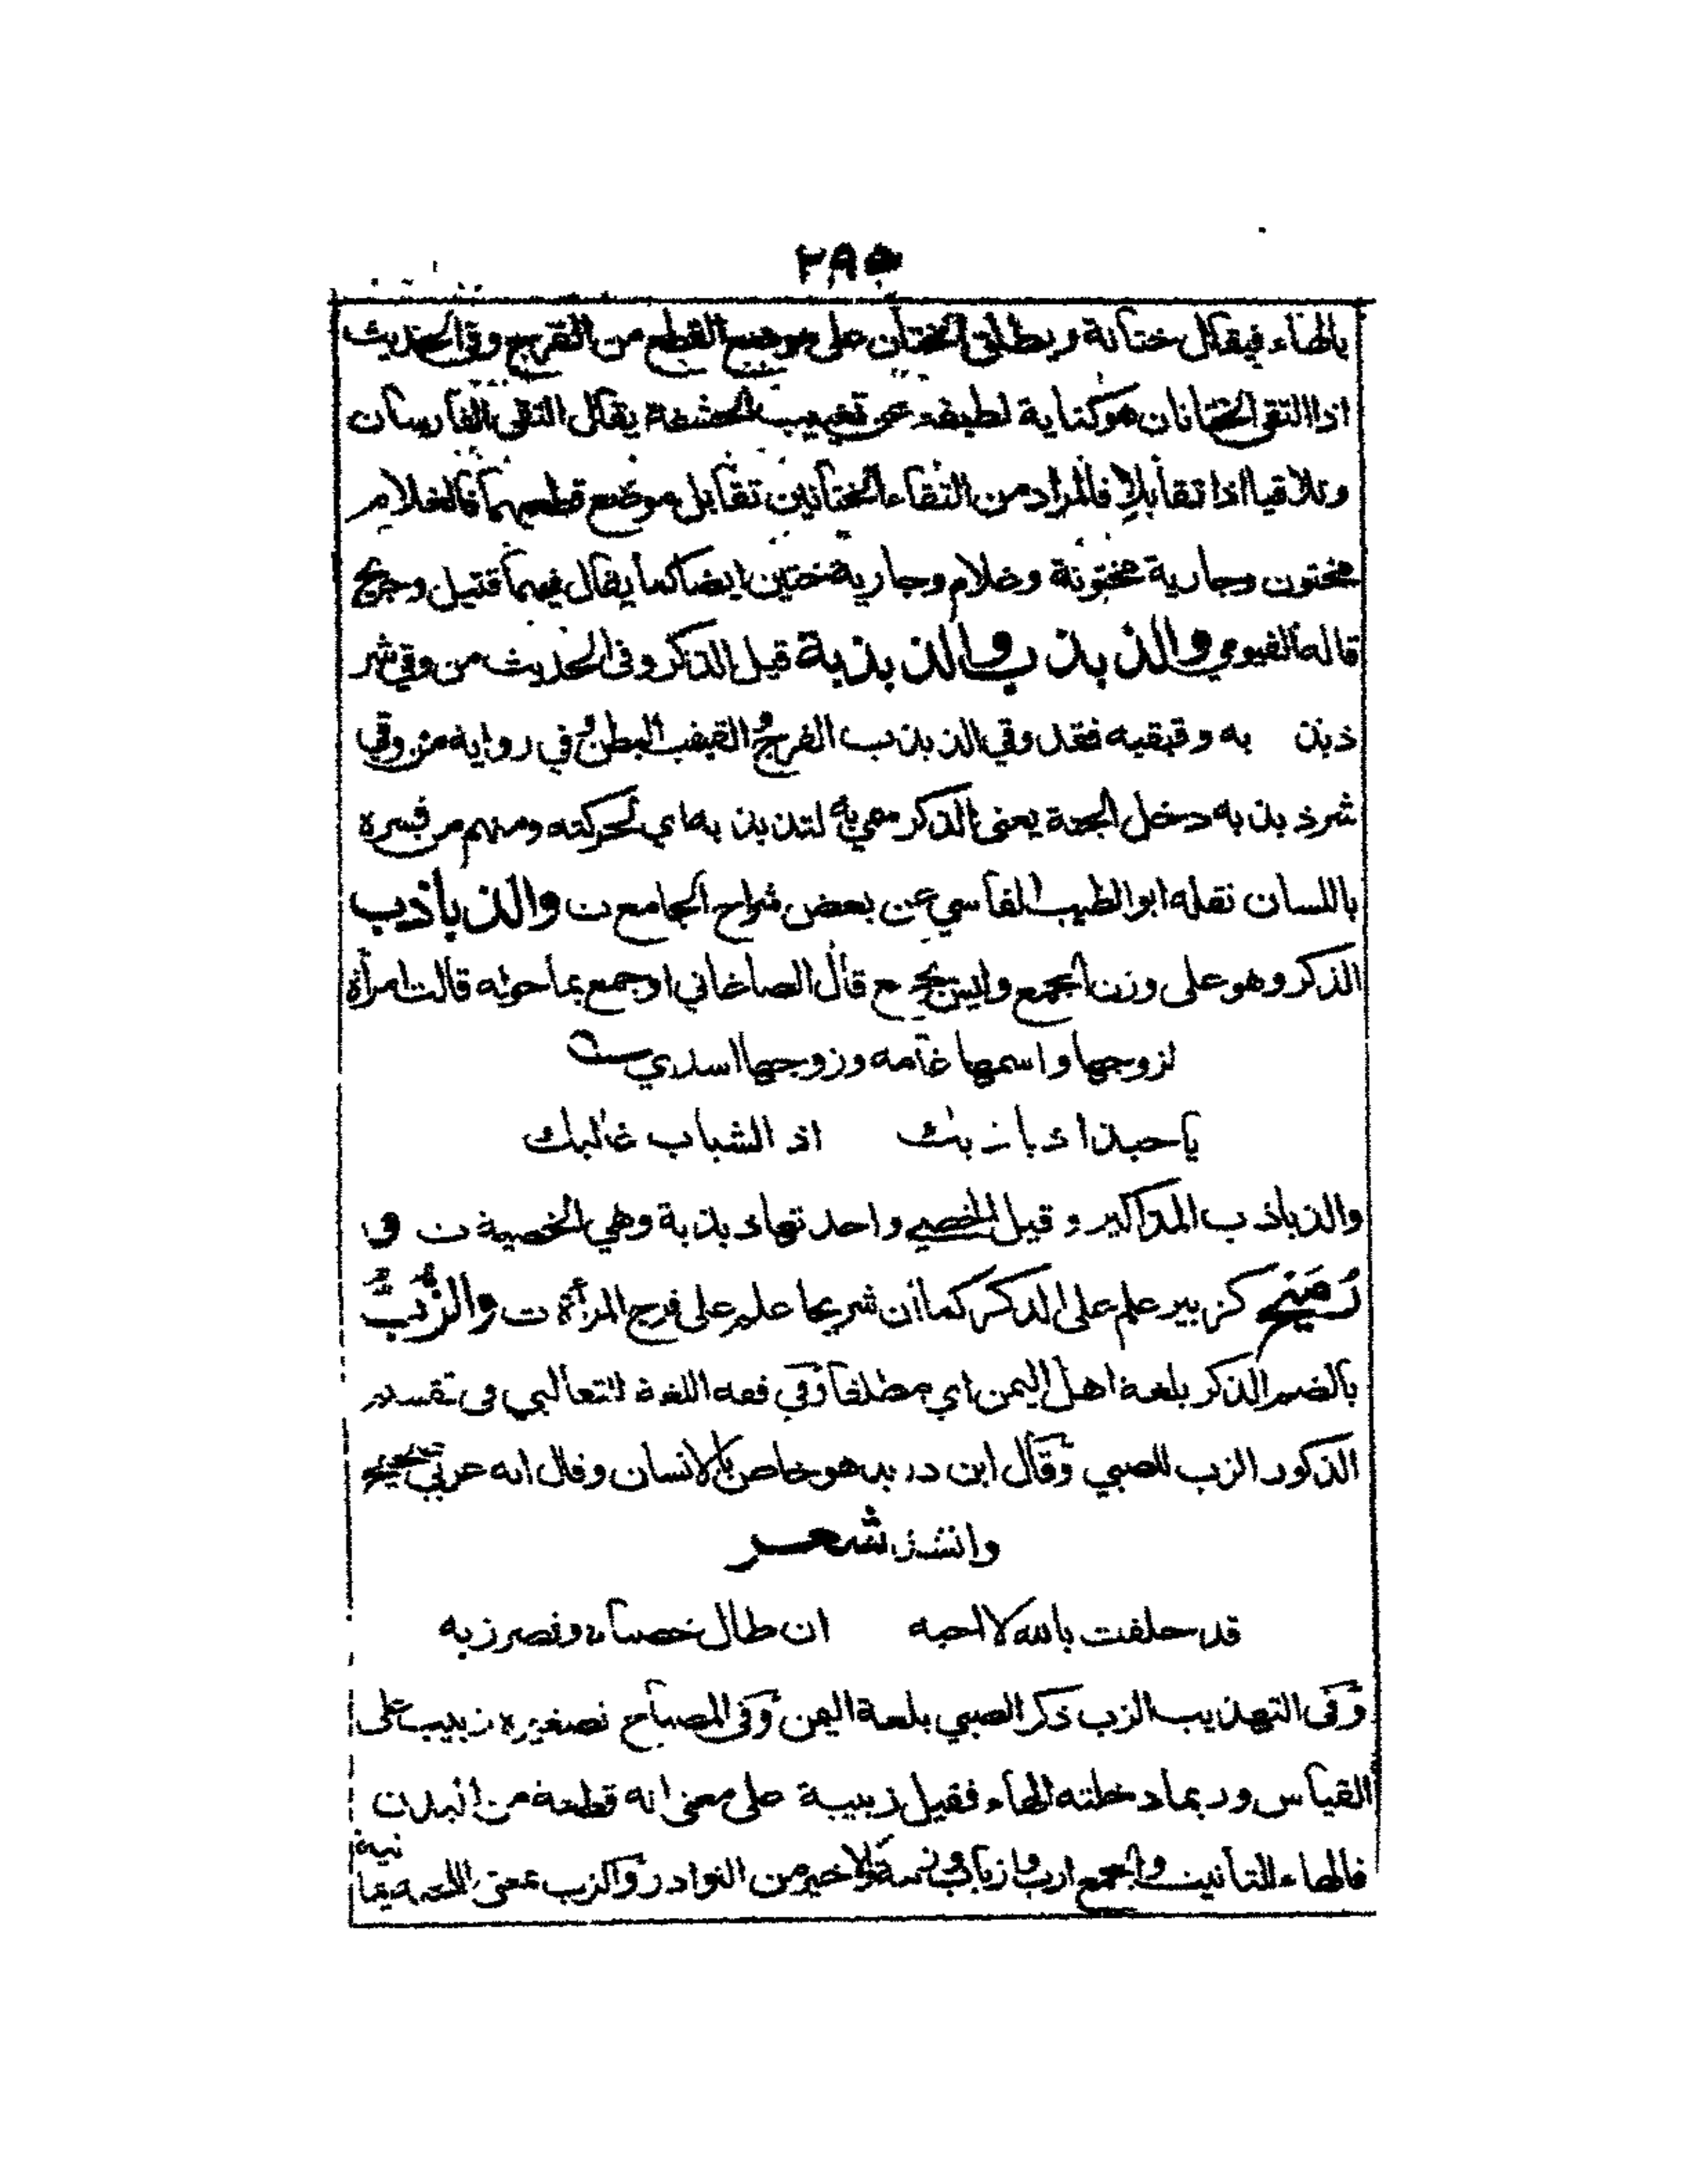 ٢٩٥
بالهاء فيقال ختانة ويطلق الختان على موضع القطع من الفرج وفي الحديث
اذا التقى الختانان هو كناية لطيفة عن تغييب الحشفة يقال التقى الفارسان
وتلاقيا اذا تقابلا فالمراد من التقاء الختانين تقابل موضع قطعهما فالغلام
مختون وجارية مختونة وغلام وجارية ختين ايضا كما يقال فيهما قتيل وجريح
قاله الفيومي والذبذب والذبذبة قيل الذكر وفي الحديث من وقي شر
ذبذ به وقبقبه فقد وقي الذبذب الفرج والقبقب البطن وفي رواية من وقي
شر ذبذبه دخل الجنة يعني الذكر سمي به لتذبذبه اي لحركته ومنهم من فسره
باللسان نقله ابو الطيب الفاسي عن بعض شراح الجامع ت والذباذب
الذكر وهو على وزن الجمع وليس بجمع قال الصاغاني او جمع بما حوله قالت امرأة
لزوجها واسمها غامه وزوجها اسدي
يا حبذا ذباذبك اذ الشباب غالبك
والذباذب المذاكير وقيل الخصي واحدتها ذبذبة وهي الخصية ت و
رميح كزبير علم على الذكر كما ان شريحا علم على فرج المرأة ت والزب
بالضم الذكر بلغة اهل اليمن اي مطلقا وفي فقه اللغة للثعالبي في تقسيم
الذكور الزب للصبي وقال ابن دريد هو خاص بالانسان وقال انه عربي صحيح
وانشد شعر
قد حلفت بالله لا احبه ان طال خصياه وقصر زبه
وفي التهذيب الزب ذكر الصبي بلغة اليمن وفي المصباح تصغيره زبيب على
القياس وربما دخلته الهاء فقيل زبيبة على معنى انه قطعة من البدن
فالهاء للتأنيث والجمع ازب وازباب وزببة والاخير من النوادر والزب بمعنى اللحية